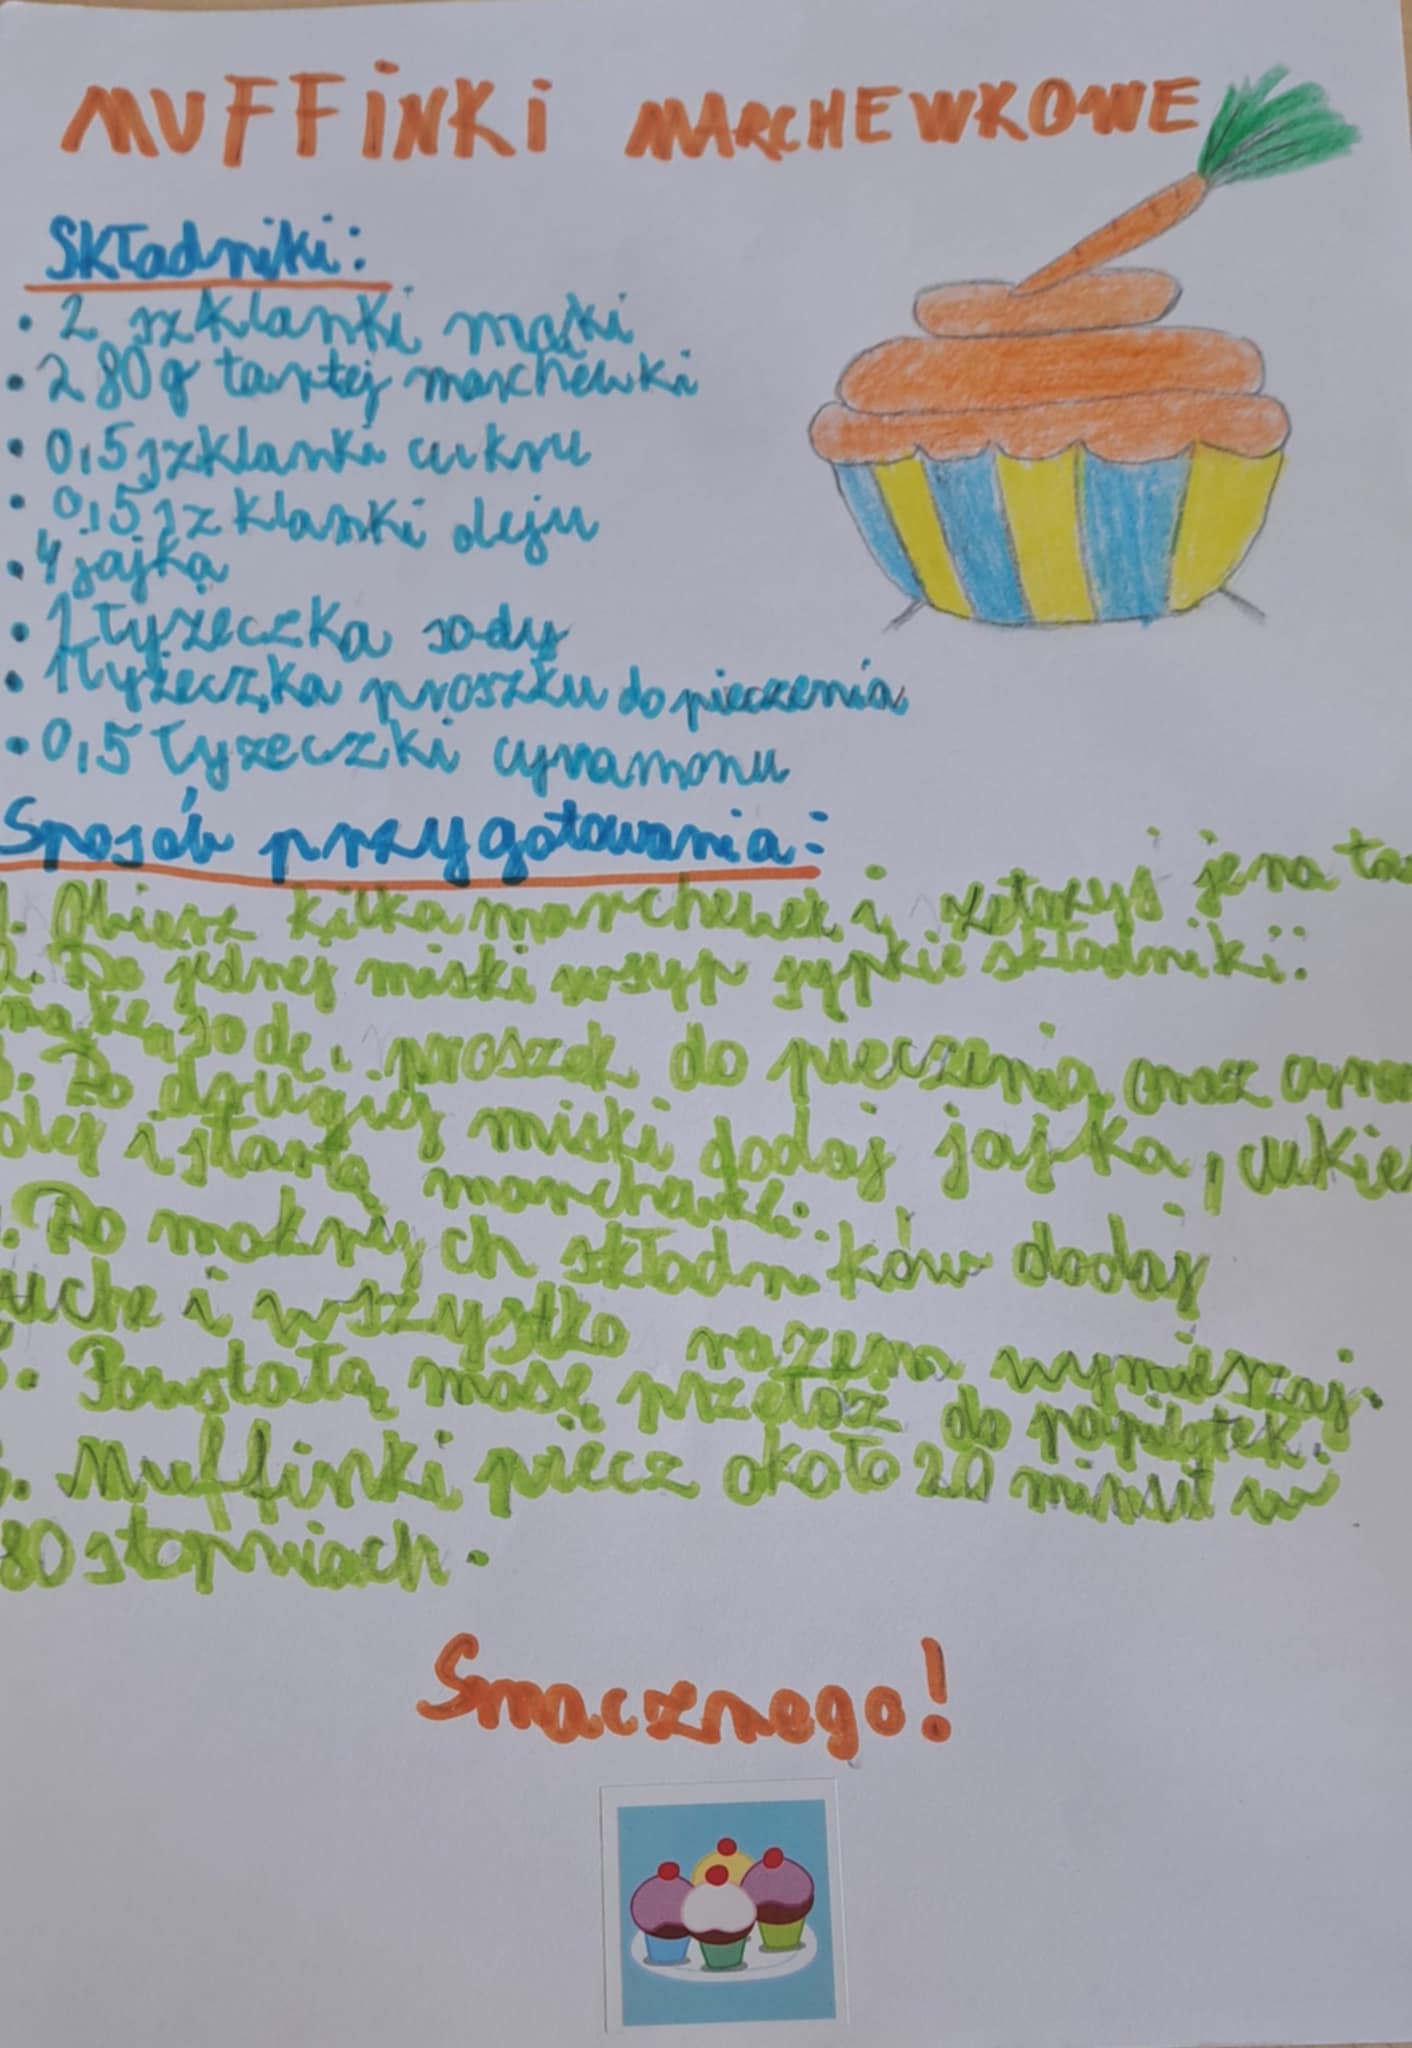 MUFFINKI MARCHEWKOWE
Składniki:
• 2 szklanki mąki
• 280g tartej marchewki
• 0,5 szklanki cukru
• 0,5 szklanki oleju
• 4 jajka
• 1 łyżeczka sody
• 1 łyżeczka proszku do pieczenia
• 0,5 łyżeczki cynamonu
Sposób przygotowania:
1. Obierz kilka marchewek i zetrzyj je na ta
2. Do jednej miski wsyp sypkie składniki:
mąkę, sodę, proszek do pieczenia oraz cynam
3. Do drugiej miski dodaj jajka, cukier
olej i startą marchewkę.
. Do mokrych składników dodaj
uche i wszystko razem wymieszaj.
. Powstałą masę przełóż do papilotek.
. Muffinki piecz około 20 minut w
80 stopniach.
Smacznego!